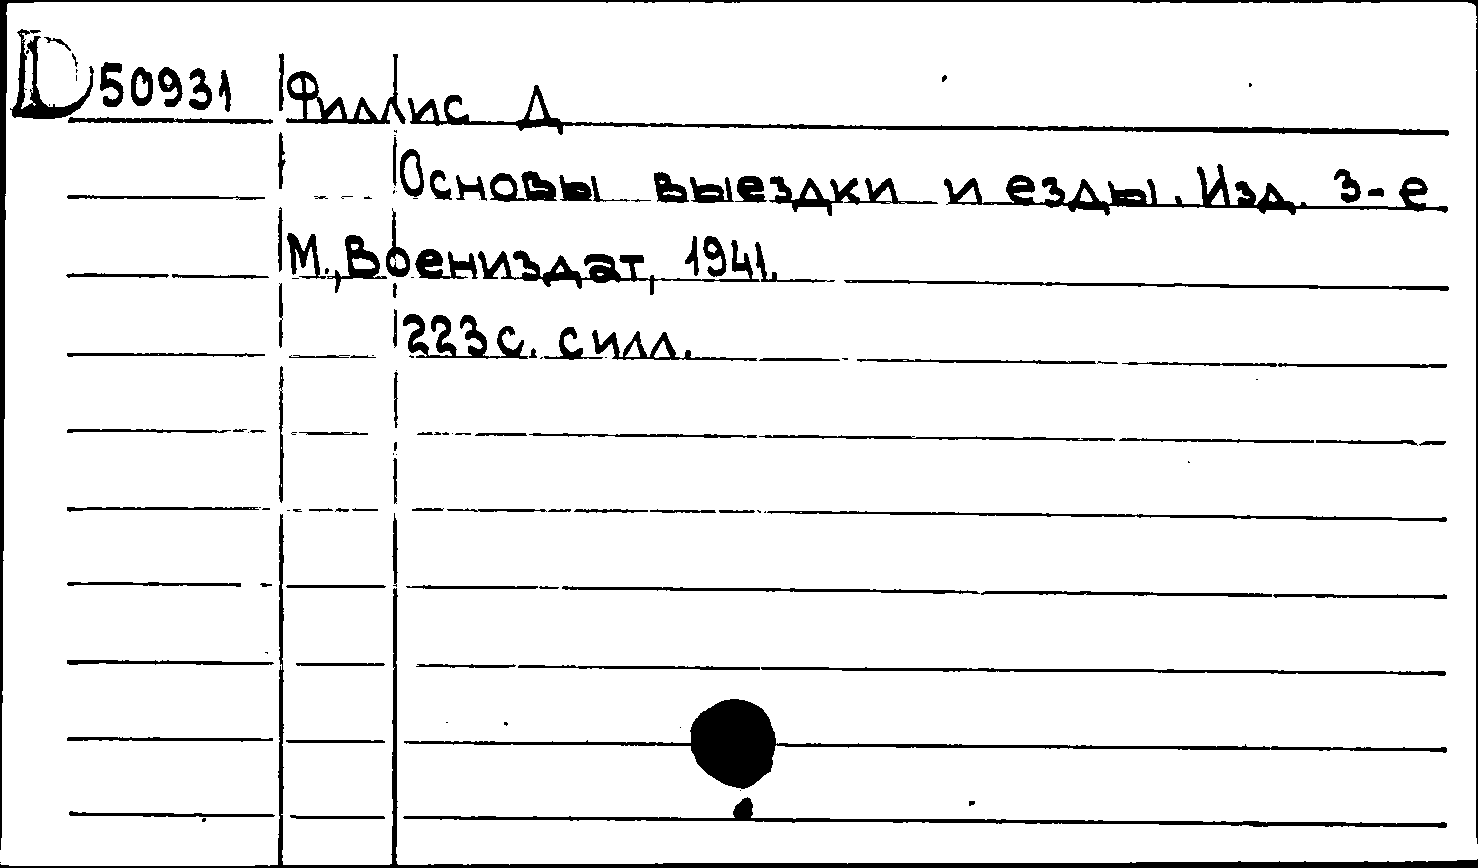 D 50931 Филлис Д
Основы выездки и езды. Изд. 3-е
М., Воениздат, 1941.
223 с. с илл.